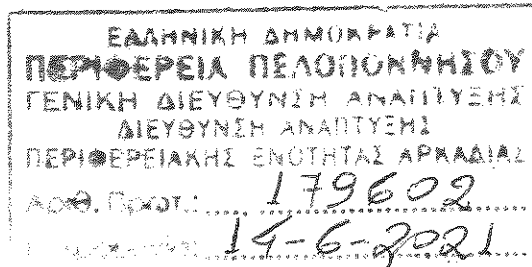 ΕΛΛΗΝΙΚΗ ΔΗΜΟΚΡΑΤΙΑ
ΠΕΡΙΦΕΡΕΙΑ ΠΕΛΟΠΟΝΝΗΣΟΥ
ΓΕΝΙΚΗ ΔΙΕΥΘΥΝΣΗ ΑΝΑΠΤΥΞΗΣ
ΔΙΕΥΘΥΝΣΗ ΑΝΑΠΤΥΞΗΣ
ΠΕΡΙΦΕΡΕΙΑΚΗΣ ΕΝΟΤΗΤΑΣ ΑΡΚΑΔΙΑΣ
Αριθ. Πρωτ.: 179602
14-6-2021